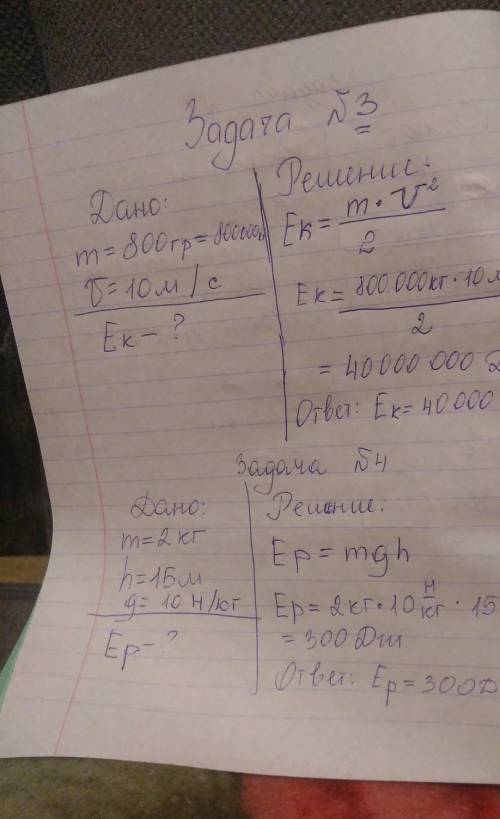 Задача №3
Дано:
m = 800гр = 800000
V = 10м/с
Ек - ?
Решение:
Ек = m · V²
2
Ек = 800.000кг · 10м
2
= 40000 000 Д
Ответ: Ек = 40.000
Задача №4
Дано:
m = 2кг
h = 15м
g = 10 Н/кг
Ер - ?
Решение:
Ер = mgh
Ер = 2кг · 10 Н/кг · 15
= 300 Дж
Ответ: Ер = 300Д